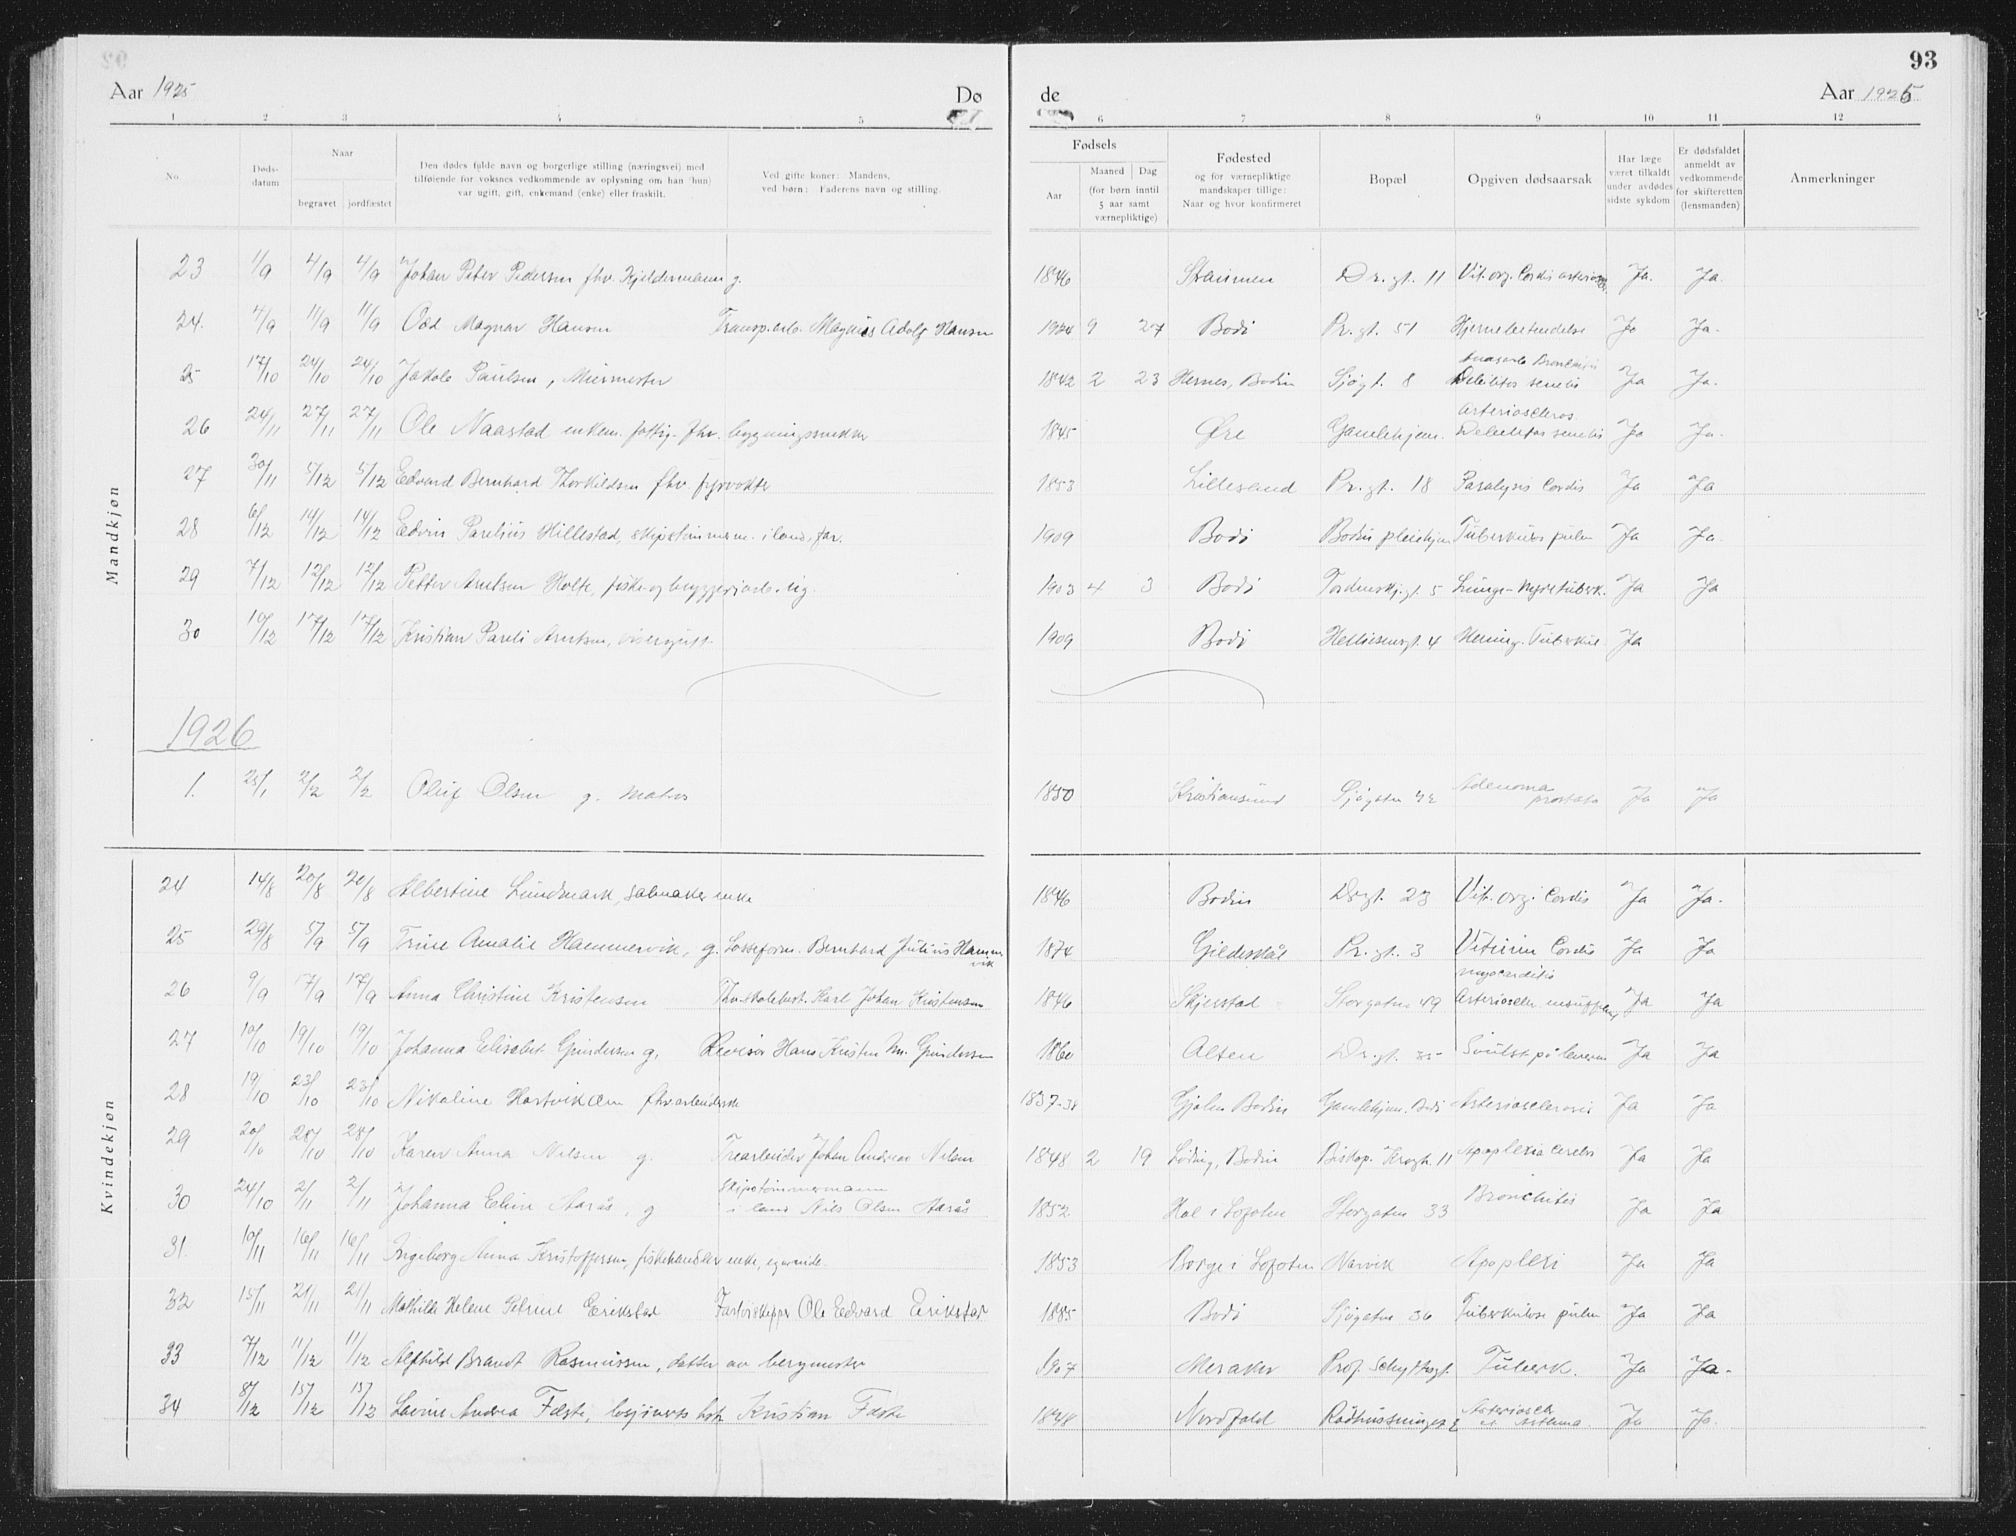 93
Aar 1925 Døde Aar 1925
1 2 3 4 5 6 7 8 9 10 11 12
No. Døds-datum Naar begravet jordfæstet Den dødes fulde navn og borgerlige stilling (næringsvei) med tilføiende for voksnes vedkommende av oplysning om han (hun) var ugift, gift, enkemand (enke) eller fraskilt. Ved gifte koner: Mandens, ved børn: Faderens navn og stilling. Fødsels Aar Maaned Dag (for børn inntil 5 aar samt værnepliktige) Fødested og for værnepliktige mandskaper tillige: Naar og hvor konfirmeret Bopæl Opgiven dødsaarsak Har læge været tilkaldt under avdødes sidste sykdom Er dødsfaldet anmeldt av vedkommende for skifteretten (lensmanden) Anmerkninger
Mandkjøn
23 1/9 4/9 4/9 Johan Peter Pedersen fhv. Kjeldermann g. 1846 Straumen Dr. gt. 11 Vit. org. Cordis Ja. Ja.
24. 4/9 11/9 11/9 Odd Magnar Hansen Transp.arb. Magnus Adolf Hansen 1924 9 27 Bodø Pr. gt. 51 Hjernebetendelse Ja Ja.
25 17/10 24/10 24/10 Jakob Paulsen, Murmester 1842 2 23 Hernes, Bodin Sjøgt. 8 Debilitas senilis Ja Ja.
26 24/11 27/11 27/11 Ole Naastad enkem. fattig. fhv. bygningssnekker 1845 Øre Gamlehjem. Arterioscleros. Debilitas senilis Ja Ja.
27 30/11 5/12 5/12 Edvard Bernhard Thorkildsen fhv. fyrvokter 1853 Lillesand Pr. gt. 18 Paralysis Cordis Ja Ja
28 6/12 14/12 14/12 Edvin Parelius Hillestad, skipstømmerm. i land, far. 1909 Bodø Bodin pleiehjem Tuberkulos pulm Ja Ja.
29 7/12 12/12 12/12 Petter Arntsen Holte, fiske- og bryggeriarb. ug. 1903 4 3 Bodø Tordenskj.gt. 5 Lunge- Nyretuberk. Ja Ja
30 10/12 17/12 17/12 Kristian Pareli Arntsen, visergutt 1909 Bodø Hellesensgt. 4 Mening. Tuberkul. Ja
1926
1. 25/1 2/2 2/2 Oluf Olsen g. matros 1850 Kristiansund Sjøgaten 42 Adenoma prostata Ja Ja
Kvindekjøn
24 14/8 20/8 20/8 Albertine Lundmark, salmaker enke 1846 Bodin Dr. gt. 23 Vit. org. Cordis Ja Ja.
25 29/8 5/9 5/9 Trine Amalie Hammervik, g. Losseform. Bernhard Julius Hammervik 1874 Gildeskål Pr. gt. 3 Vitium Cordis Ja Ja
26 9/9 17/9 17/9 Anna Christine Kristensen Fhv. skolebest. Karl Johan Kristensen 1846 Skjerstad Storgaten 49 Myocarditis Ja Ja
27 10/10 19/10 19/10 Johanna Elisabet Gundersen g. Revisor Hans Kristen M. Gundersen 1860 Alten Dr. gt. 35 Svulst på leveren Ja Ja
28 19/10 23/10 23/10 Nikoline Hartviksen fhv. arbeiderske 1837-38 Gjølen Bodin Gamlehjem. Bodø Arteriosclerosis Ja Ja
29 20/10 28/10 28/10 Karen Anna Nilsen g. Trearbeider Johan Andreas Nilsen 1848 2 19 Løding, Bodin Biskop. Kroght. 11 Apoplexia cerebri Ja Ja
30 24/10 2/11 2/11 Johanna Eline Aarås, g Skipstømmermann i land Nils Olsen Aarås 1852 Hol i Lofoten Storgaten 33 Bronchitis Ja Ja
31. 10/11 16/11 16/11 Ingeborg Anna Kristoffersen, fiskehandler enke 1853 Borge i Lofoten Narvik Apoplexi Ja Ja
32 15/11 21/11 21/11 Mathilde Helene Petrine Erikstad Fartøiskipper Ole Edvard Erikstad 1885 Bodø Sjøgaten 36 Tuberkulose pulm Ja Ja
33 7/12 11/12 11/12 Alfhild Brandt Rasmussen, datter av bergmester 1907 Meraker Prof. Schyttesgt. Tuberk. Ja Ja.
34 8/12 15/12 15/12 Lovine Andrea Fæste, Kristian Fæste 1848 Nordfold Rådhussvingen 2 Arterioscler et Asthma Ja Ja.